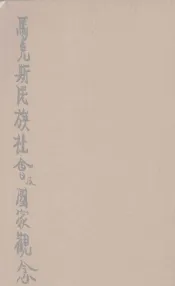 馬克斯民族社會及國家觀念